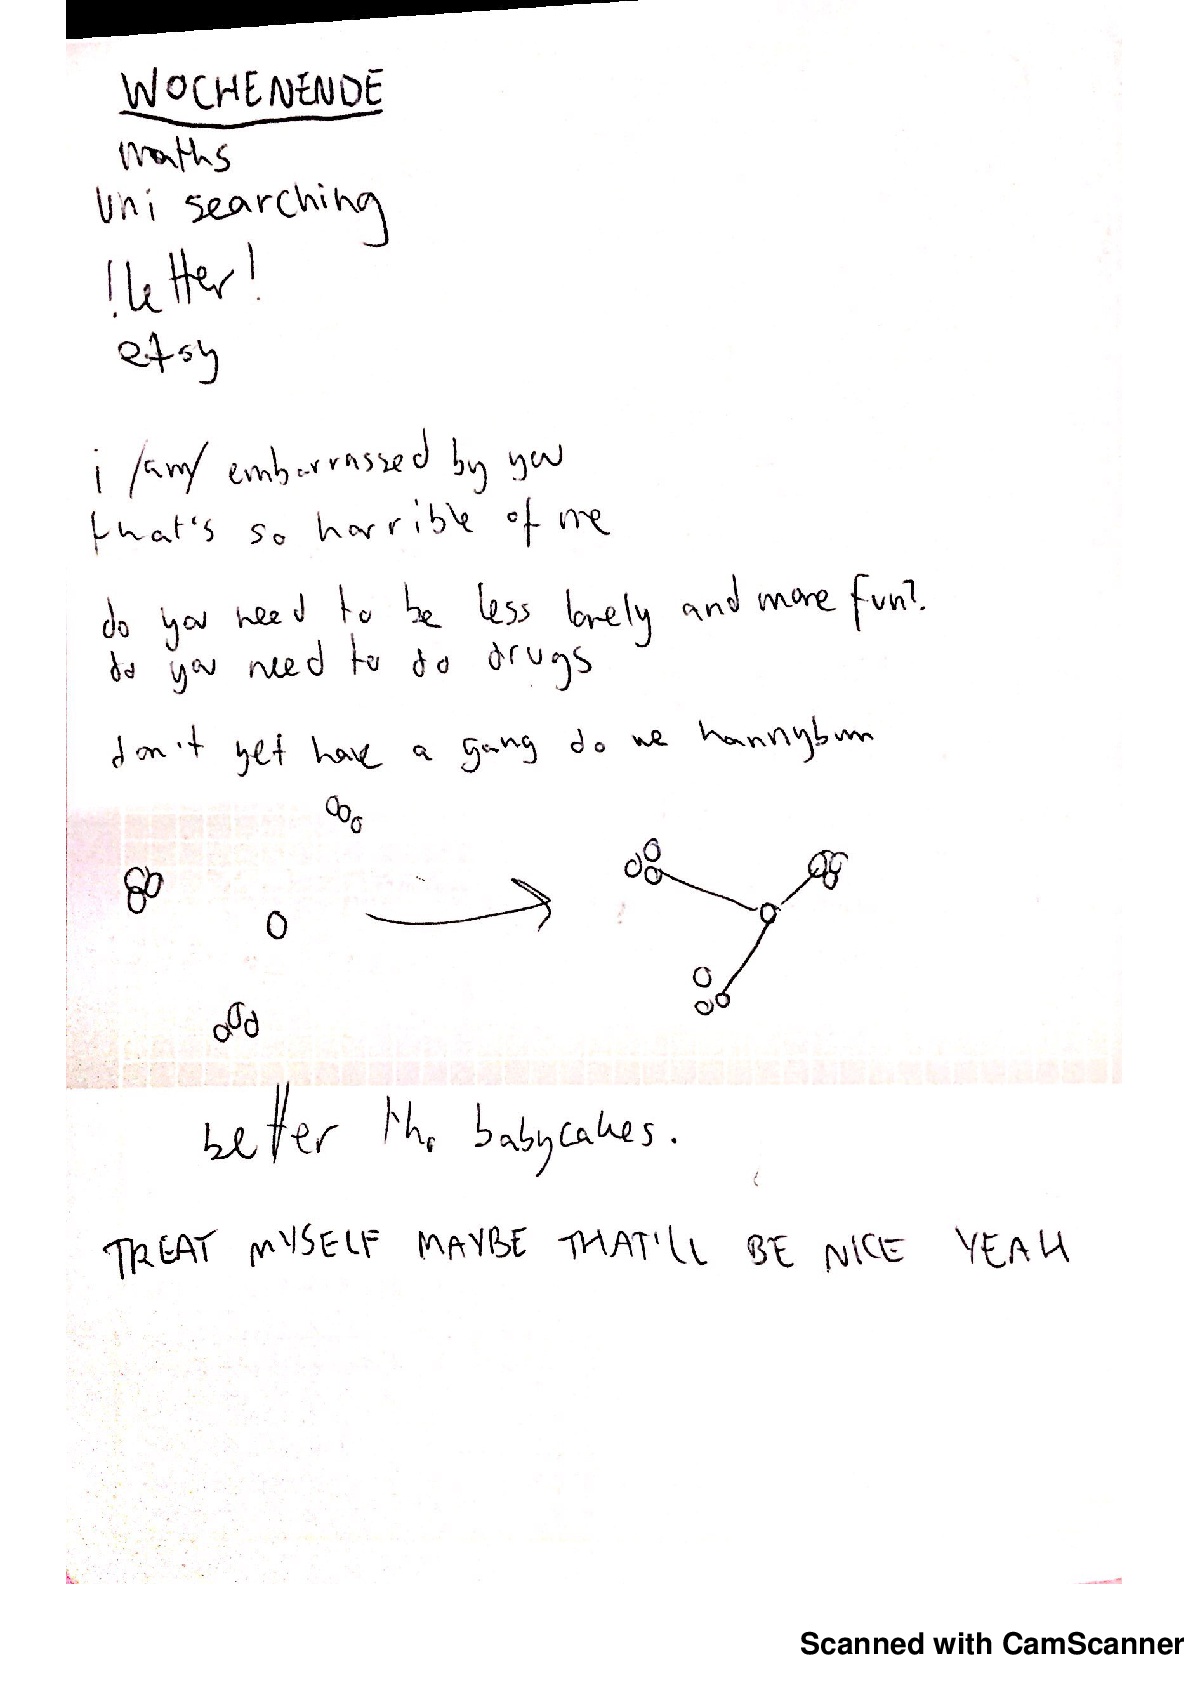 WOCHENENDE
maths
uni searching
! letter !
etsy
i /am/ embarrassed by you
that's so horrible of me
do you need to be less lonely and more fun?
do you need to do drugs
don't yet have a gang do we hannybun
better babycakes.
TREAT MYSELF MAYBE THAT'LL BE NICE YEAH
Scanned with CamScanner